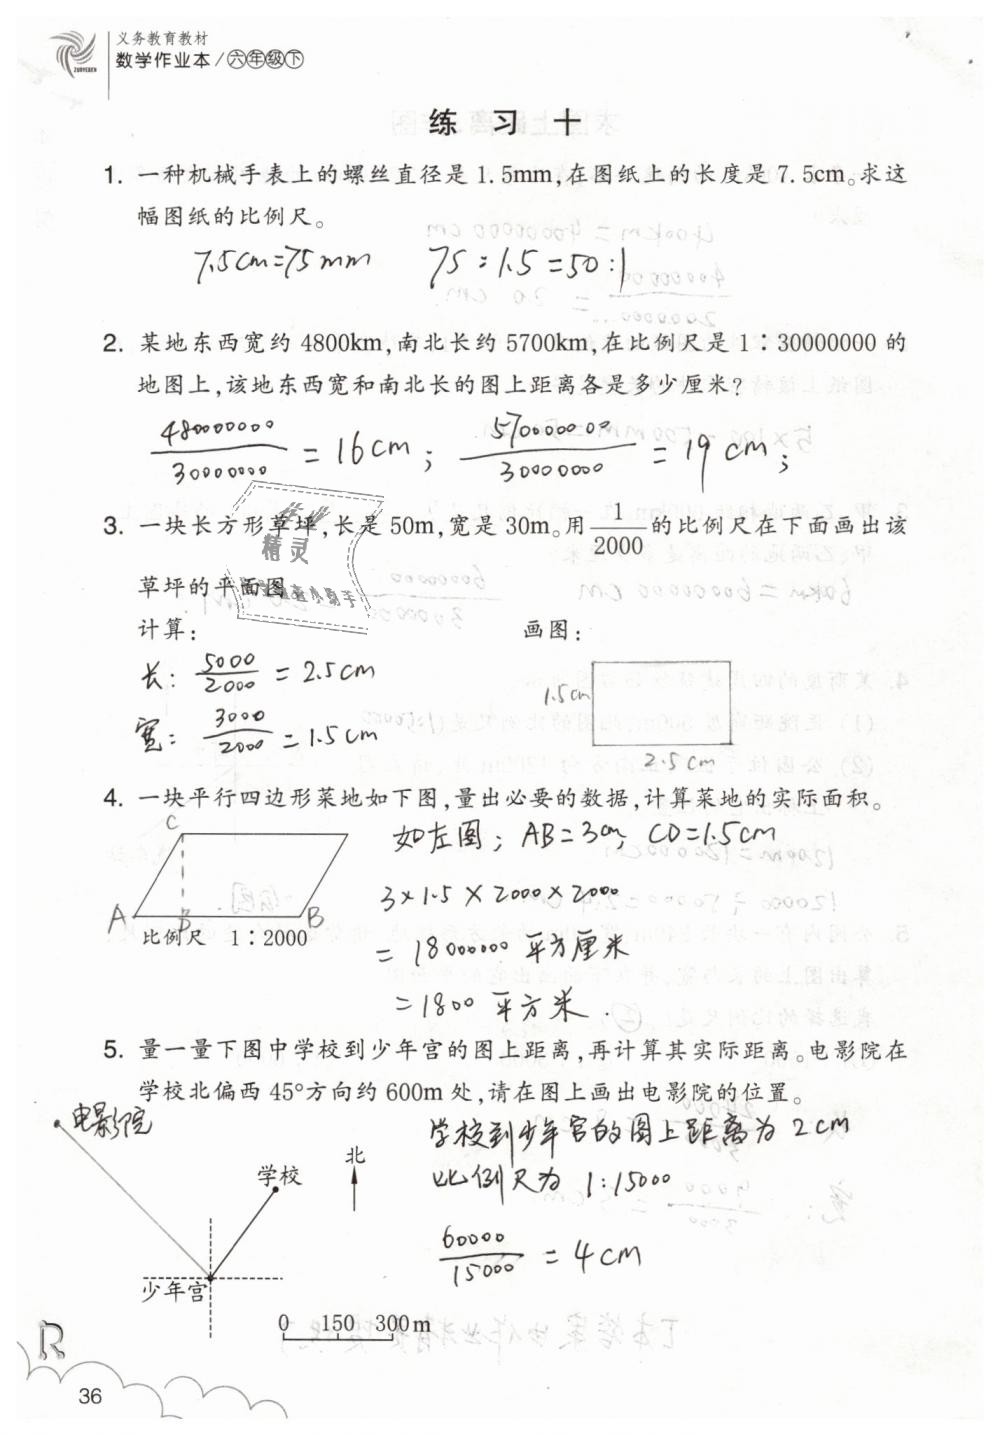 义务教育教材
数学作业本/六年级下
ZUOYEBEN
练 习 十
1. 一种机械手表上的螺丝直径是1.5mm,在图纸上的长度是7.5cm。求这
幅图纸的比例尺。
7.5cm=75mm 75:1.5=50:1
2. 某地东西宽约4800km,南北长约5700km,在比例尺是1∶30000000的
地图上,该地东西宽和南北长的图上距离各是多少厘米?
480000000/30000000 = 16cm; 570000000/30000000 = 19cm;
3. 一块长方形草坪,长是50m,宽是30m。用1/2000的比例尺在下面画出该
草坪的平面图
计算: 画图:
长: 5000/2000 = 2.5cm
宽: 3000/2000 = 1.5cm
1.5cm
2.5cm
4. 一块平行四边形菜地如下图,量出必要的数据,计算菜地的实际面积。
C
A B B
比例尺 1∶2000
如左图; AB=3cm, CD=1.5cm
3×1.5×2000×2000
= 18000000 平方厘米
=1800 平方米.
5. 量一量下图中学校到少年宫的图上距离,再计算其实际距离。电影院在
学校北偏西45°方向约600m处,请在图上画出电影院的位置。
电影院
学校
北
少年宫
0 150 300m
学校到少年宫的图上距离为2cm
比例尺为 1:15000
60000/15000 = 4cm
精灵
36